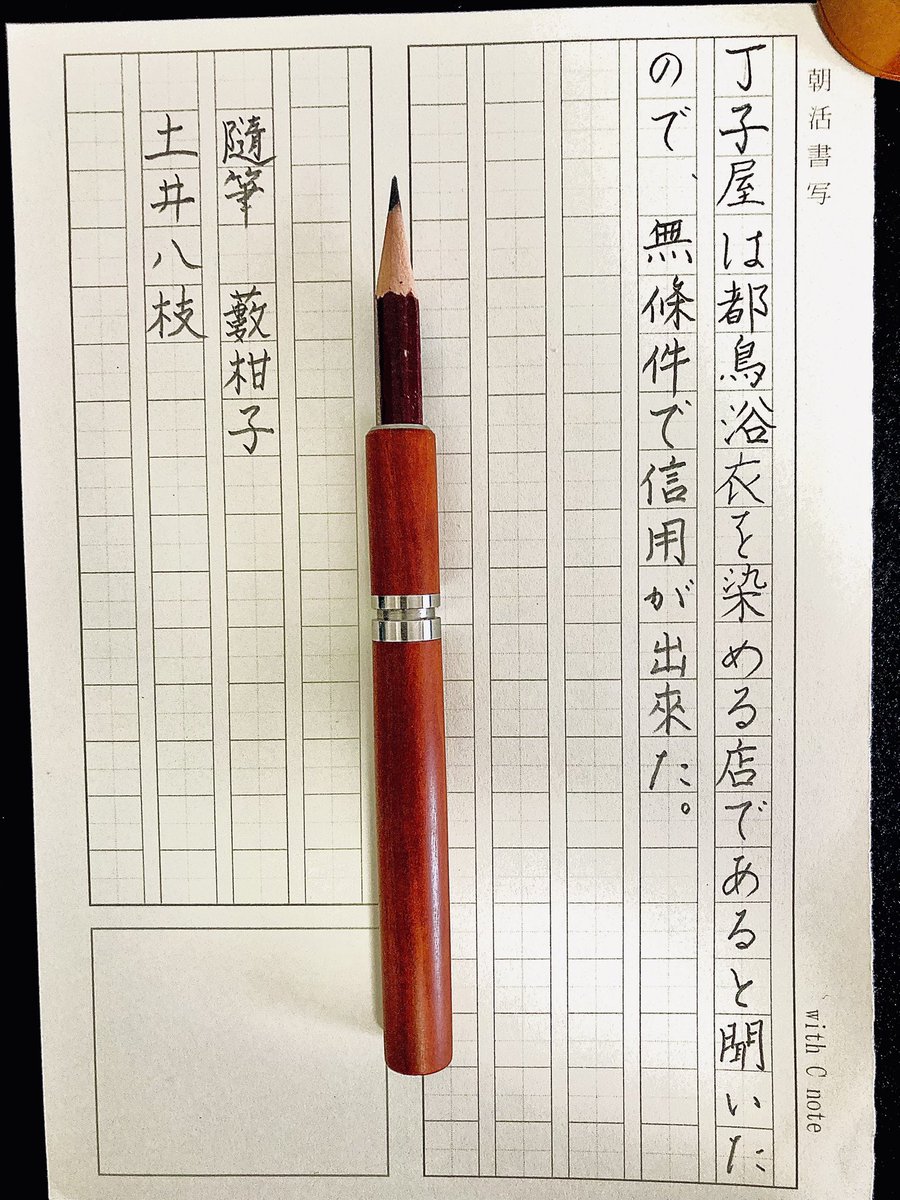 朝活書写
with C note
丁子屋は都鳥浴衣を染める店であると聞いた
ので、無條件で信用が出來た。
隨筆 藪柑子
土井八枝